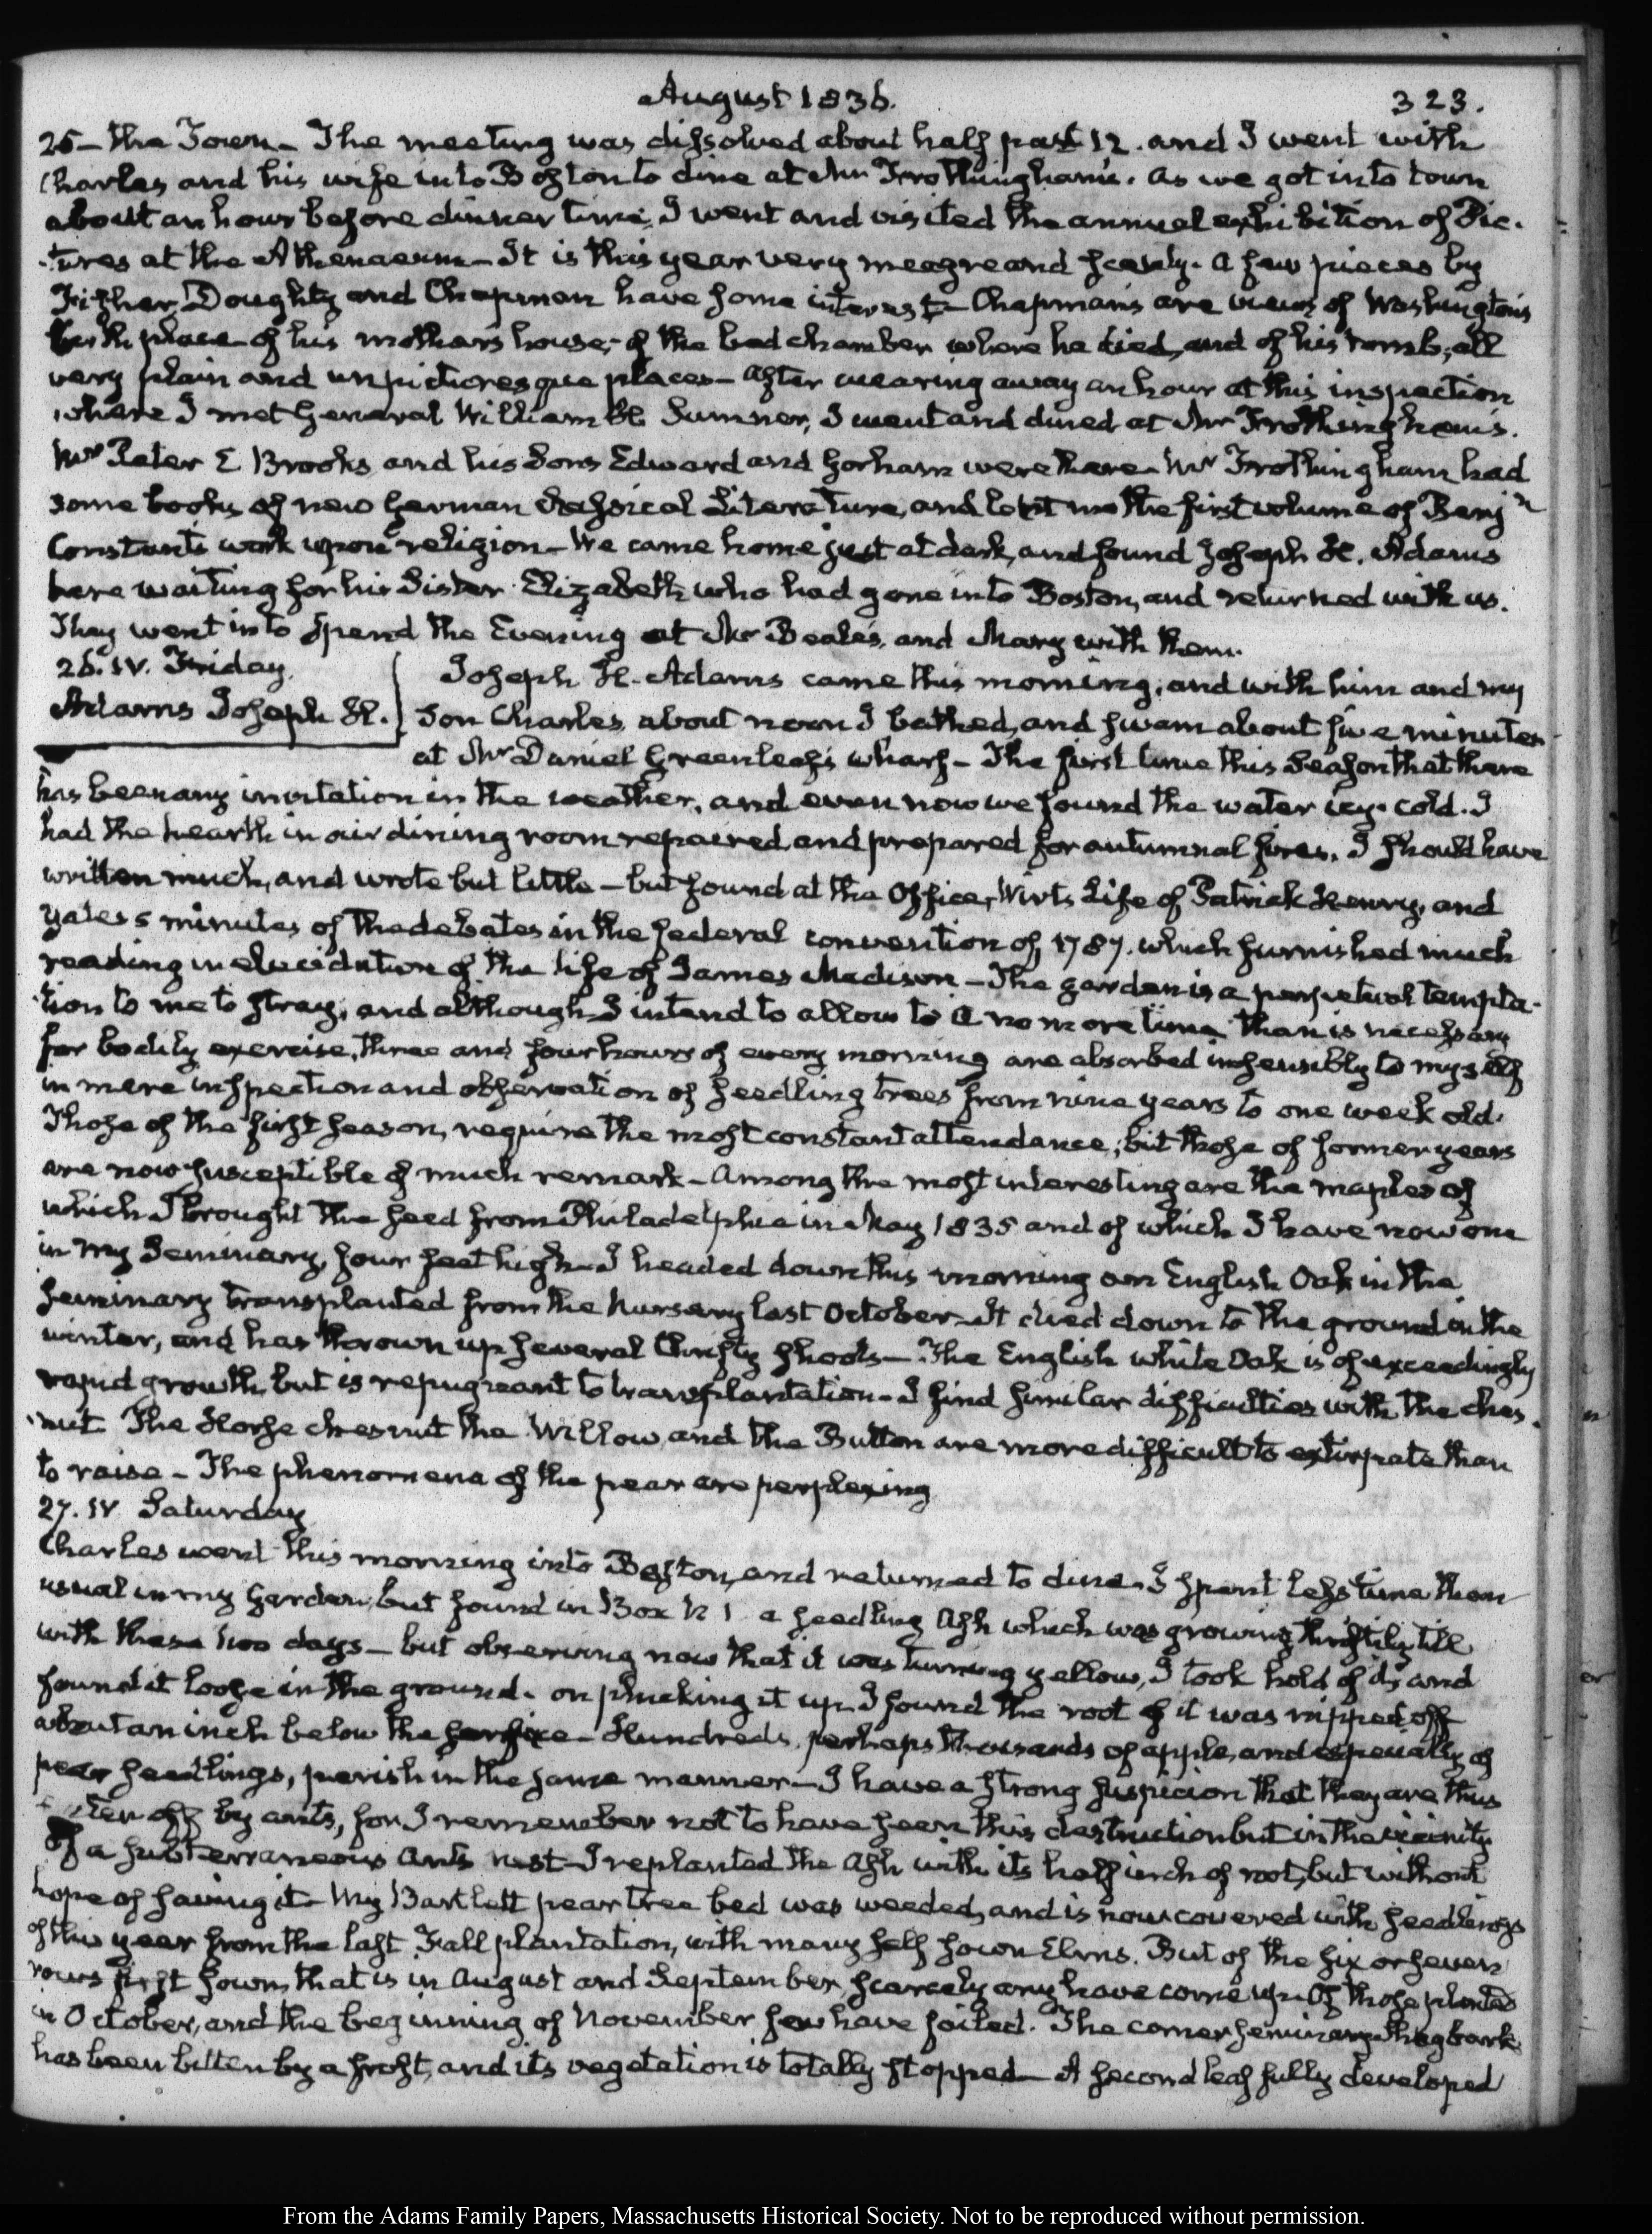 August 1836. 323.
25 — the Town — The meeting was dissolved about half past 12. and I went with
Charles and his wife into Boston to dine at Mr Frothingham's. As we got into town
about an hour before dinner time, I went and visited the annual exhibition of Pic-
-tures at the Athenaeum — It is this year very meagre and scanty. A few pieces by
Fisher, Doughty and Chapman have some interest — Chapman's are views of Washington's
birth place — of his mother's house, of the bed chamber where he died, and of his tomb; all
very plain and unpicturesque places — After wearing away an hour at this inspection
where I met General William H. Sumner, I went and dined at Mr Frothingham's.
Mr Peter C Brooks and his Sons Edward and Gorham were there — Mr Frothingham had
some books of new German classical Literature, and lent me the first volume of Benjn
Constant's work upon religion — We came home just at dark, and found Joseph H. Adams
here waiting for his Sister Elizabeth who had gone into Boston, and returned with us.
They went in to spend the Evening at Mr Beale's, and Mary with them.
26. IV. Friday.
Adams Joseph H.
Joseph H. Adams came this morning, and with him and my
Son Charles, about noon I bathed, and swam about five minutes
at Mr Daniel Greenleaf's wharf — The first time this Season that there
has been any invitation in the weather, and even now we found the water icy-cold. I
had the hearth in our dining room repaired, and prepared for autumnal fires. I should have
written much, and wrote but little — but found at the Office, Wirt's Life of Patrick Henry, and
Yates's minutes of the debates in the federal convention of 1787. which furnished much
reading in elucidation of the life of James Madison — The garden is a perpetual tempta-
-tion to me to stray; and although I intend to allow to it no more time than is necessary
for bodily exercise, three and four hours of every morning are absorbed insensibly to myself
in mere inspection and observation of seedling trees from nine years to one week old.
Those of the first season, require the most constant attendance; but those of former years
are now susceptible of much remark — Among the most interesting are the maples of
which I brought the seed from Philadelphia in May 1835 and of which I have now one
in my Seminary, four feet high — I headed down this morning an English Oak in the
Seminary transplanted from the Nursery last October — It died down to the ground in the
winter, and has thrown up several thrifty shoots — The English white Oak is of exceedingly
rapid growth, but is repugnant to transplantation — I find similar difficulties with the ches-
-nut. The Horse chesnut the Willow, and the Button are more difficult to extirpate than
to raise — The phenomena of the pear are perplexing
27. IV Saturday
Charles went this morning into Boston, and returned to dine. I spent less time than
usual in my Garden, but found in Box N 1 a seedling Ash which was growing thriftily till
with these two days — but observing now that it was turning yellow, I took hold of it, and
found it loose in the ground. on plucking it up I found the root of it was nipped off
about an inch below the surface — Hundreds, perhaps thousands of apple, and especially of
pear seedlings, perish in the same manner — I have a strong suspicion that they are thus
off by ants, for I remember not to have seen this destruction but in the vicinity
of a subterraneous ants nest — I replanted the Ash with its half inch of root, but without
hope of saving it — My Bartlett pear tree bed was weeded, and is now covered with seedlings
of this year from the last Fall plantation, with many self sown Elms. But of the six or seven
rows first sown, that is in August and September, scarcely any have come up. Of those planted
in October, and the beginning of November few have failed. The corner Seminary Shagbark
has been bitten by a frost, and its vegetation is totally stopped — A second leaf fully developed
From the Adams Family Papers, Massachusetts Historical Society. Not to be reproduced without permission.